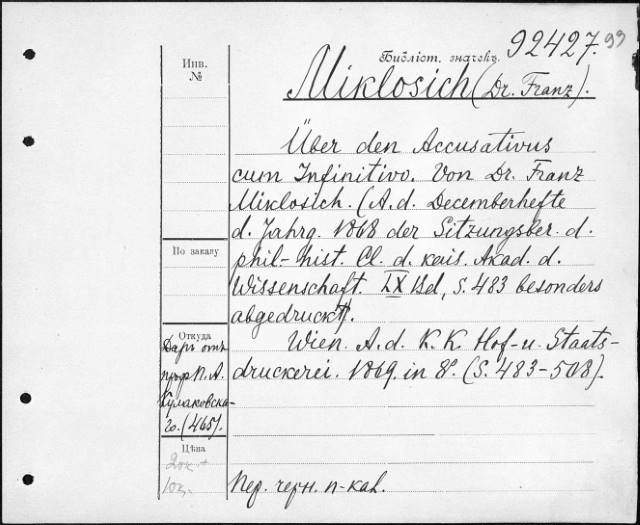 92427. 93
Библіот. значекъ
Инв.
№
Miklosich (Dr. Franz).
Über den Accusativus
cum Infinitivo. Von Dr. Franz
Miklosich. (A. d. Decemberhefte
d. Jahrg. 1868 der Sitzungsber. d.
phil.-hist. Cl. d. kais. Akad. d.
Wissenschaft. LX Bd, S. 483 besonders
abgedruckt).
Wien. A. d. K. K. Hof- u. Staats-
druckerei. 1869. in 8°. (S. 483-508).
По заказу
Откуда
Даръ отъ
проф. П. А.
Кулаковска-
го. (465).
Цѣна
20к.
10к.
Пер. черн. п-каl.